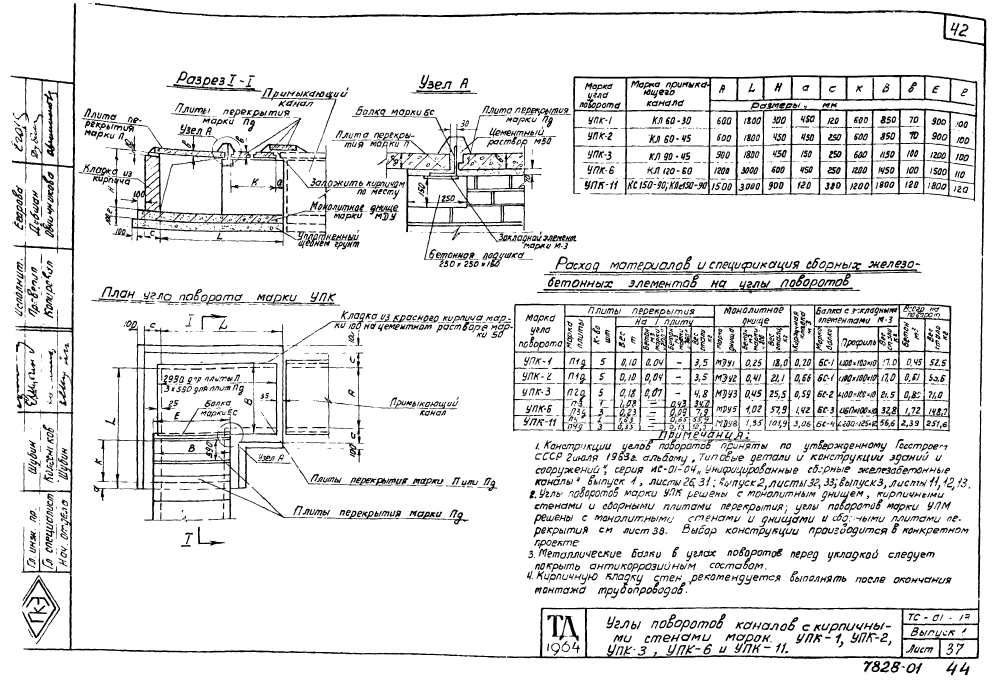 42
Разрез I-I
Примыкающий канал
Плиты перекрытия марки Пд
Плита перекрытия марки П
Узел А
Кладка из кирпича
К
Заложить кирпичом по месту
Монолитное днище марки МДУ
Уплотненный щебнем грунт
100
С
L
Узел А
Балка марки БС
30
Плита перекрытия марки Пд
Плита перекрытия марки П
Цементный раствор М50
150
250
Закладной элемент марки М-3
Бетонная подушка
250×250×150
Марка угла поворота
Марка примыкающего канала
А L Н а с к В в Е е
Размеры, мм
УПК-1 КЛ 60-30 600 1800 300 450 120 600 850 70 900 100
УПК-2 КЛ 60-45 600 1800 450 450 250 600 850 70 900 100
УПК-3 КЛ 90-45 900 1800 450 150 250 600 1150 100 1200 100
УПК-6 КЛ 120-60 1200 3000 600 450 250 1200 1450 100 1500 110
УПК-11 КС150-90; КЛс150-90 1500 3000 900 120 380 1200 1800 120 1800 120
Расход материалов и спецификация сборных железо-
бетонных элементов на углы поворотов
Марка угла поворота
Плиты перекрытия
Монолитное днище
Балка с закладными элементами М-3
Всего на поворот
Марка плиты
К-во шт
Вес т
На 1 плиту
Профиль
УПК-1 П1д 5 0,10 0,04 - 3,5 МДУ1 0,25 18,0 0,20 БС-1 17,0 0,45 52,5
УПК-2 П1д 5 0,10 0,04 - 3,5 МДУ2 0,41 21,1 0,66 БС-1 17,0 0,61
УПК-3 П2д 5 0,18 0,07 - 4,8 МДУ3 0,45 25,5 0,59 БС-2 21,5 71,0
УПК-6 МДУ5 1,02 57,9 1,42 БС-3 32,8 1,72 148,7
УПК-11 МДУ8 1,35 101,9 3,06 БС-4 56,6 2,39 251,6
План угла поворота марки УПК
I
L
Кладка из красного кирпича мар-
ки 100 на цементном растворе мар-
ки 50
100
с
2990 для плиты П
3×590 для плит Пд
25
Е
Балка марки БС
В
35
590
Примыкающий канал
А
Узел А
L
К
а
Плиты перекрытия марки П или Пд
Плиты перекрытия марки Пд
I
Примечания:
1. Конструкции углов поворотов приняты по утвержденному Госстроем
СССР 2 июля 1963г. альбому „Типовые детали и конструкции зданий и
сооружений", серия ИС-01-04 „Унифицированные сборные железобетонные
каналы" выпуск 1, листы 26,31; выпуск 2, листы 32,33; выпуск 3, листы 11,12,13.
2. Углы поворотов марки УПК решены с монолитным днищем, кирпичными
стенами и сборными плитами перекрытия; углы поворотов марки УПМ
решены с монолитными стенами и днищами и сборными плитами пе-
рекрытия см лист 38. Выбор конструкции производится в конкретном
проекте
3. Металлические балки в углах поворотов перед укладкой следует
покрыть антикоррозийным составом.
4. Кирпичную кладку стен рекомендуется выполнять после окончания
монтажа трубопроводов.
ТД
1964
Углы поворотов каналов с кирпичны-
ми стенами марок УПК-1, УПК-2,
УПК-3, УПК-6 и УПК-11.
ТС-01-
Выпуск 1
Лист 37
7828-01 44
Гл. инж. пр. Шубин
Гл специалист
Нач. отдела Шубин
Исполнит. Егорова
Проверил
Копировал
ГКЭ